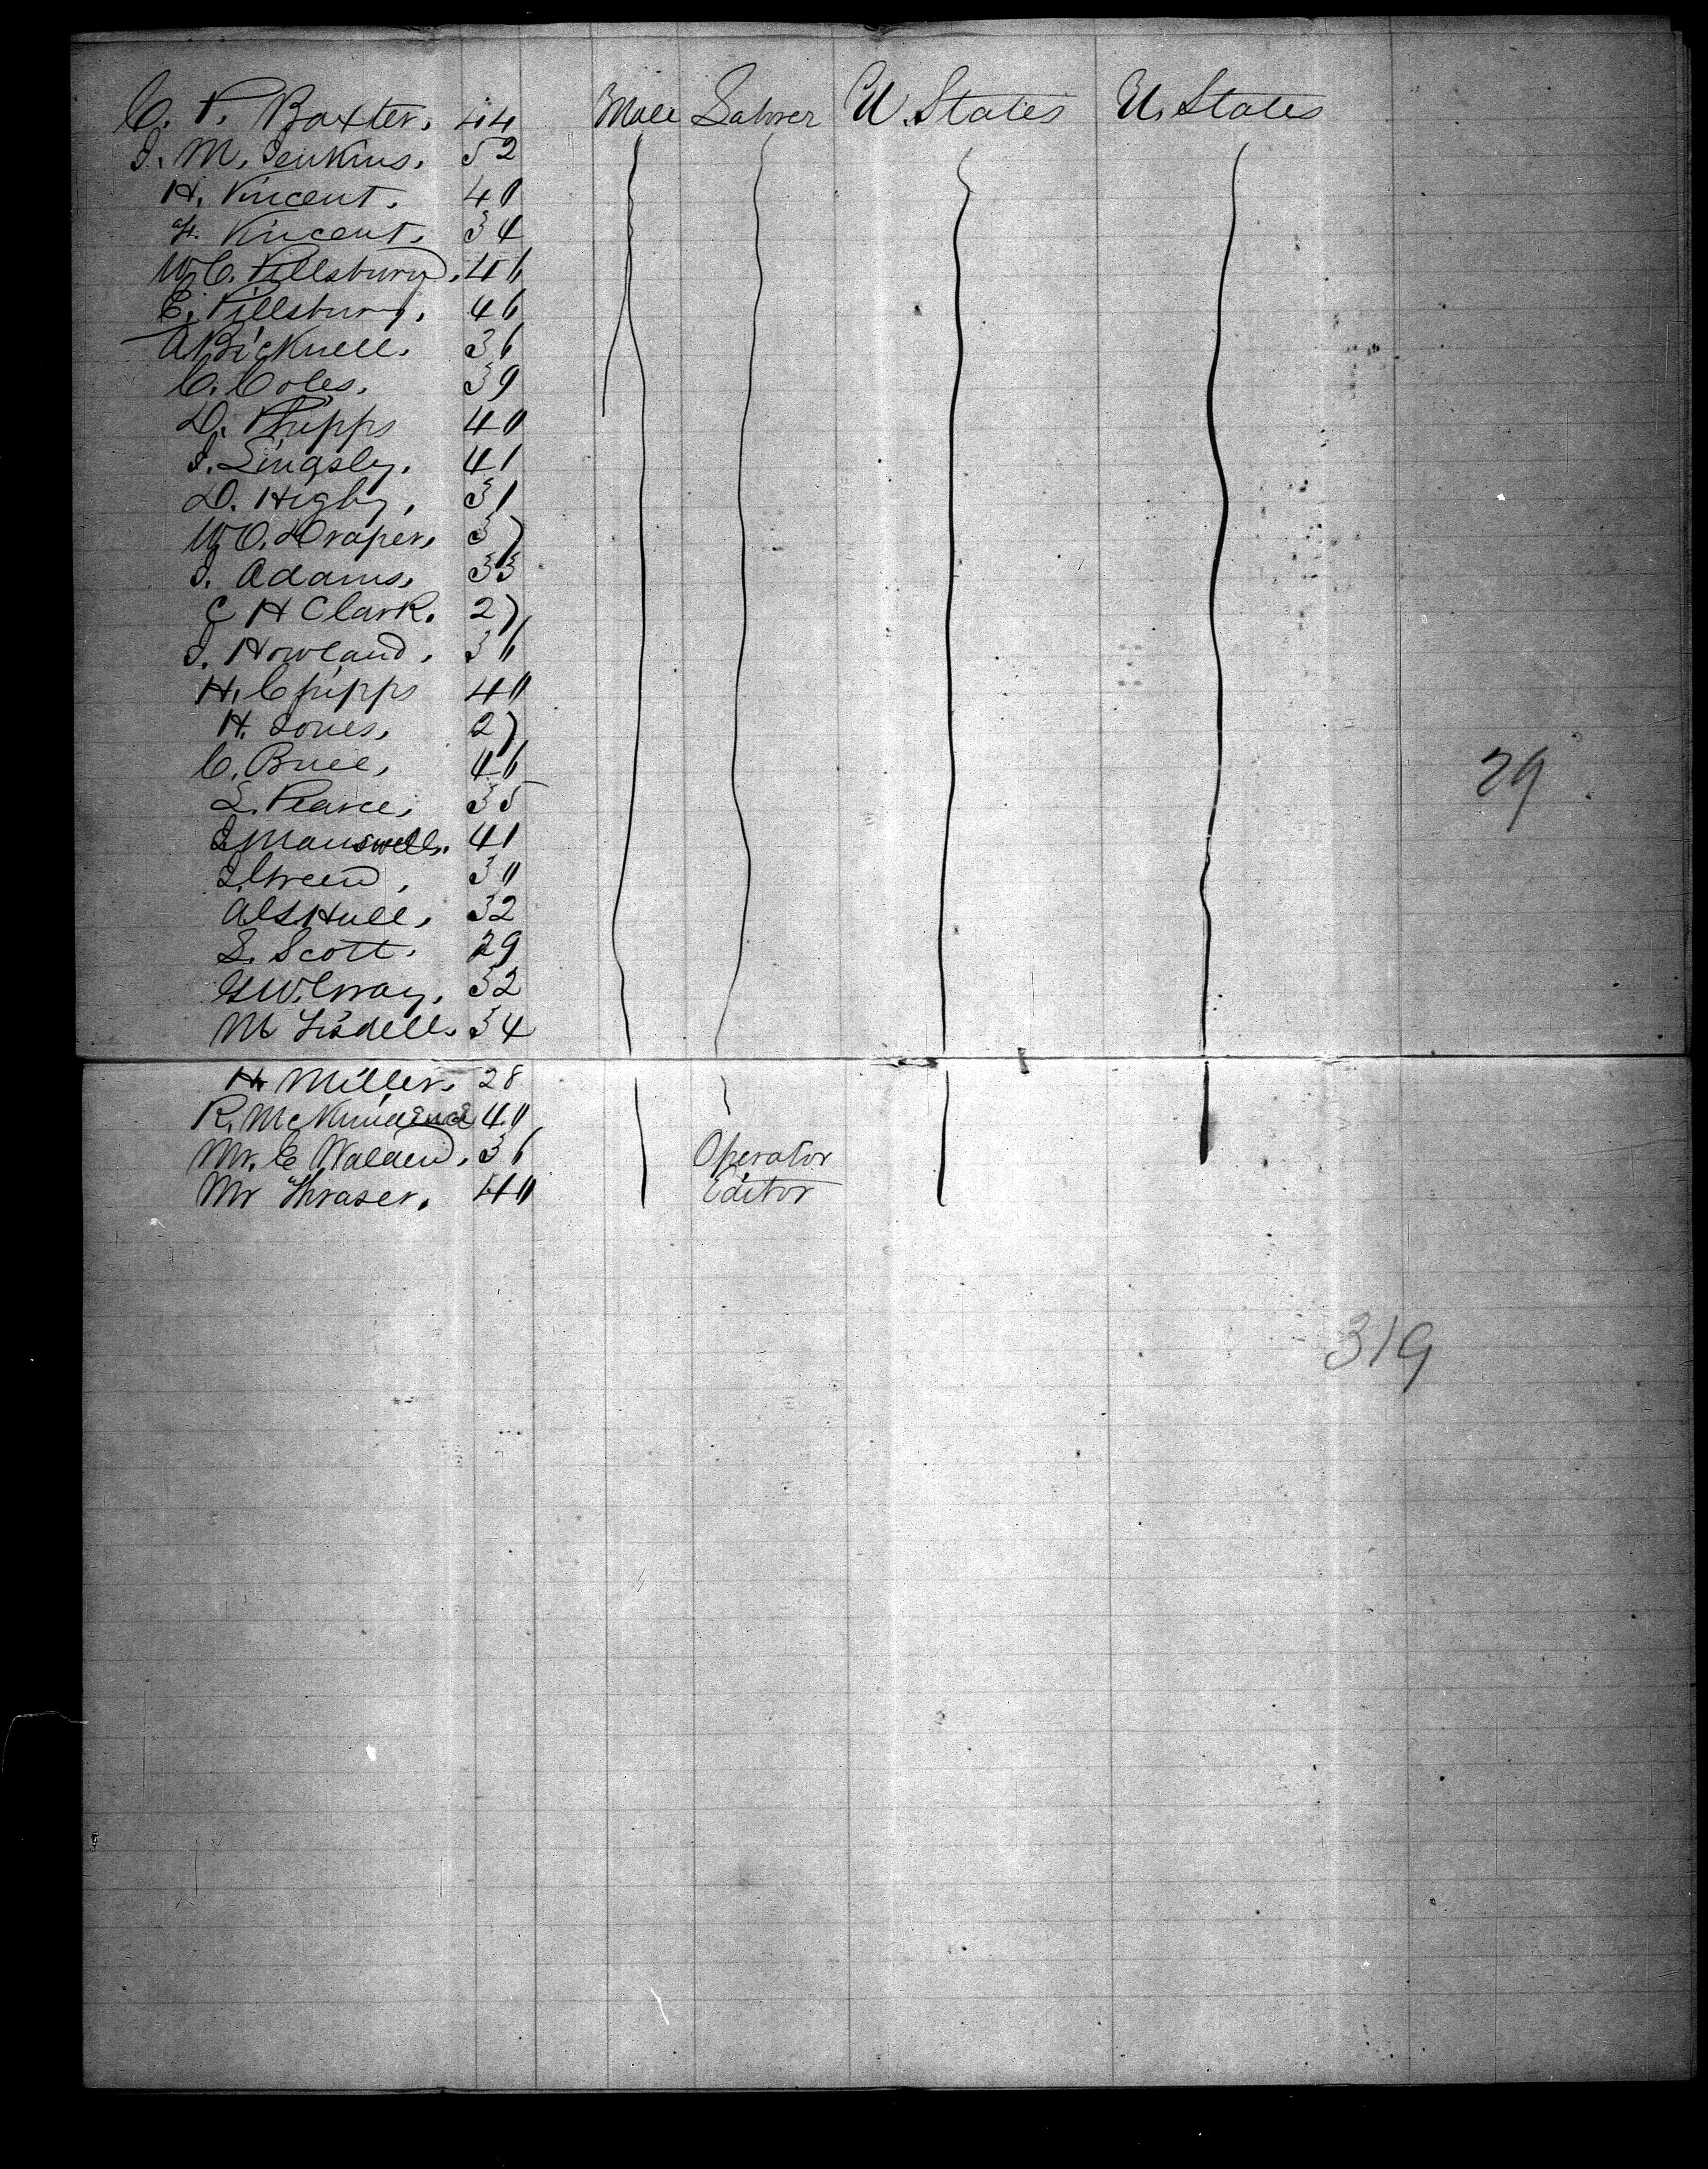 C. P. Baxter. 44 Male Laborer U. States U. States
J. M. Jenkins. 52
H. Vincent. 40
Vincent. 34
W. C. Pillsbury. 46
E. Pillsbury. 46
A Bicknell. 36
C. Coles. 39
D. Phipps 40
J. Lingsly. 41
D. Higby. 31
W. O. Draper. 37
J. Adams. 33
C H Clark. 27
J. Howland. 36
H. Chipps 40
H. Jones. 27
C. Brice. 46
L. Pearce. 35
J. Manswell. 41
J. Green. 30
A L S Hull. 32
S. Scott. 29
G. W. Gray. 32
M Tisdell. 34
H Miller. 28
R. 40
Mr. E Walden. 36 Operator
Mr Thraser. 40 Editor
29
319